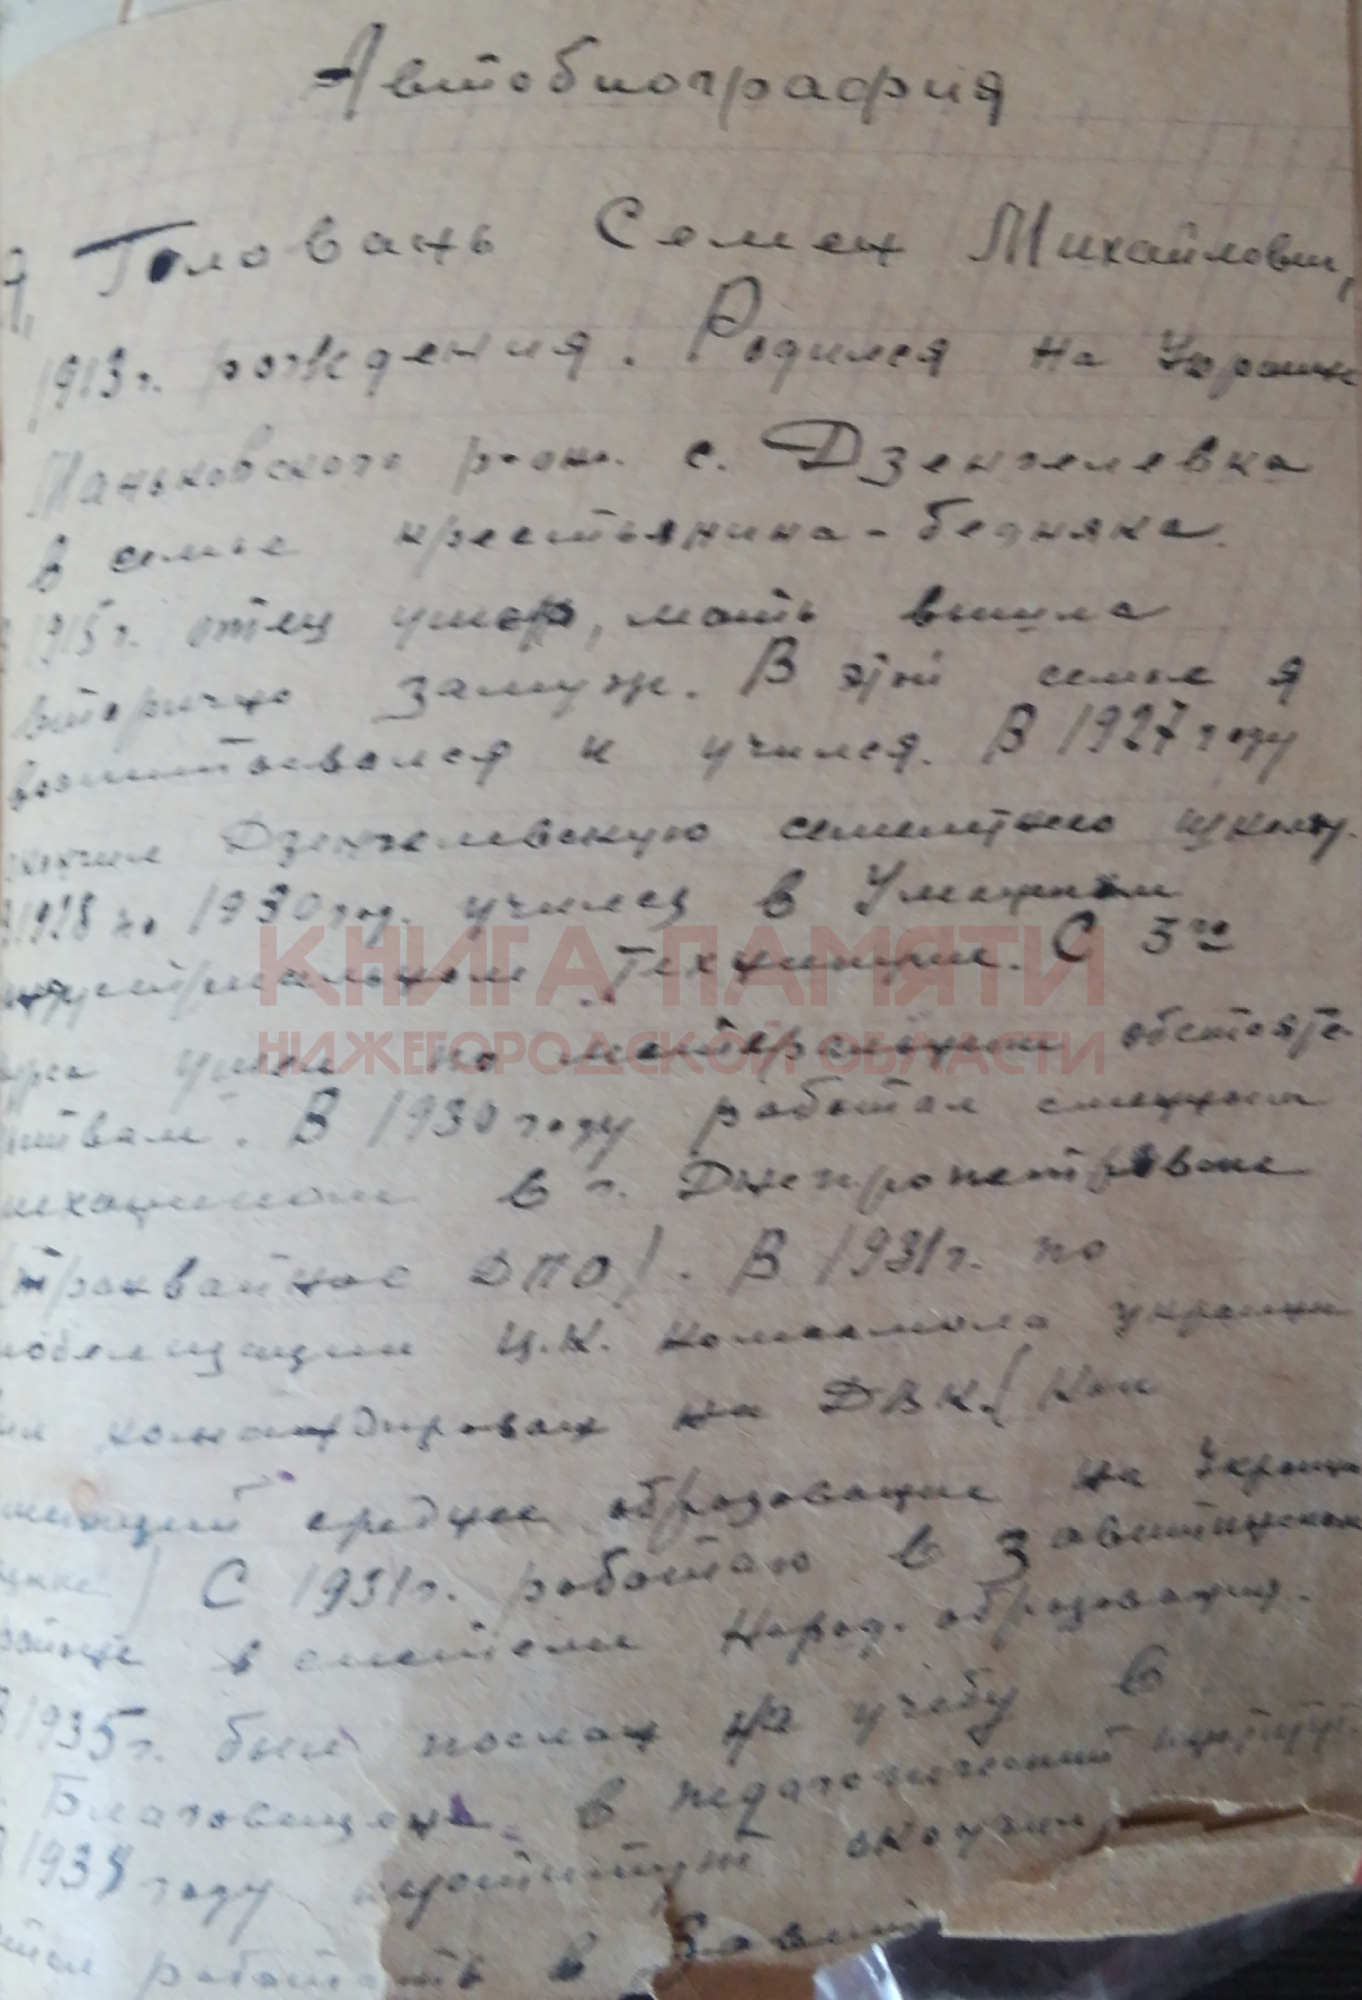 Автобиография
Я, Головань Семен Михайлович,
1913г. рождения. Родился на Украине
Маньковского р-она. с. Дзенгелевка
в семье крестьянина-бедняка.
В 1915г. отец умер, мать вышла
вторично замуж. В этой семье я
воспитывался и учился. В 1927 году
окончил Дзенгелевскую семилетнюю школу.
В 1928 по 1930 год. учился в Уманском
индустриальном Техникуме. С 3го
КНИГА ПАМЯТИ
НИЖЕГОРОДСКОЙ ОБЛАСТИ
курса ушел по материальным обстояте-
льствам. В 1930 году работал сменным
механиком в г. Днепропетровске
(трамвайное ДПО). В 1931г. по
мобилизации Ц.К. Комсомола Украины
был командирован на ДВК. (Как
имеющий среднее образование на Украин
) С 1931г. работаю в Завитинском
районе в системе Народ. образования.
В 1935г. был послан на учебу в
г. Благовещенск в педагогический институт.
В 1938 году институт окончил,
работать в Завит